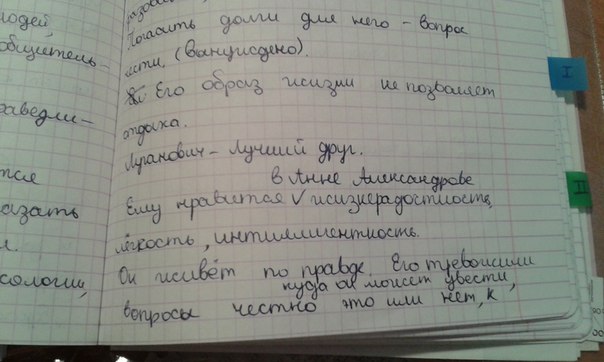 людей,
общитель-
раведли-
тся
казать
л.
сологии,
Погасить долги для него - вопрос
чести, (вынуждено).
Его образ жизни не позволяет
отдыха.
Луганович - Лучший друг.
в Анне Александровне
Ему нравится V жизнерадостность,
лёгкость, интиллигентность.
Он живёт по правде. Его тревожили
куда он может увести,
вопросы честно это или нет, к
I
II